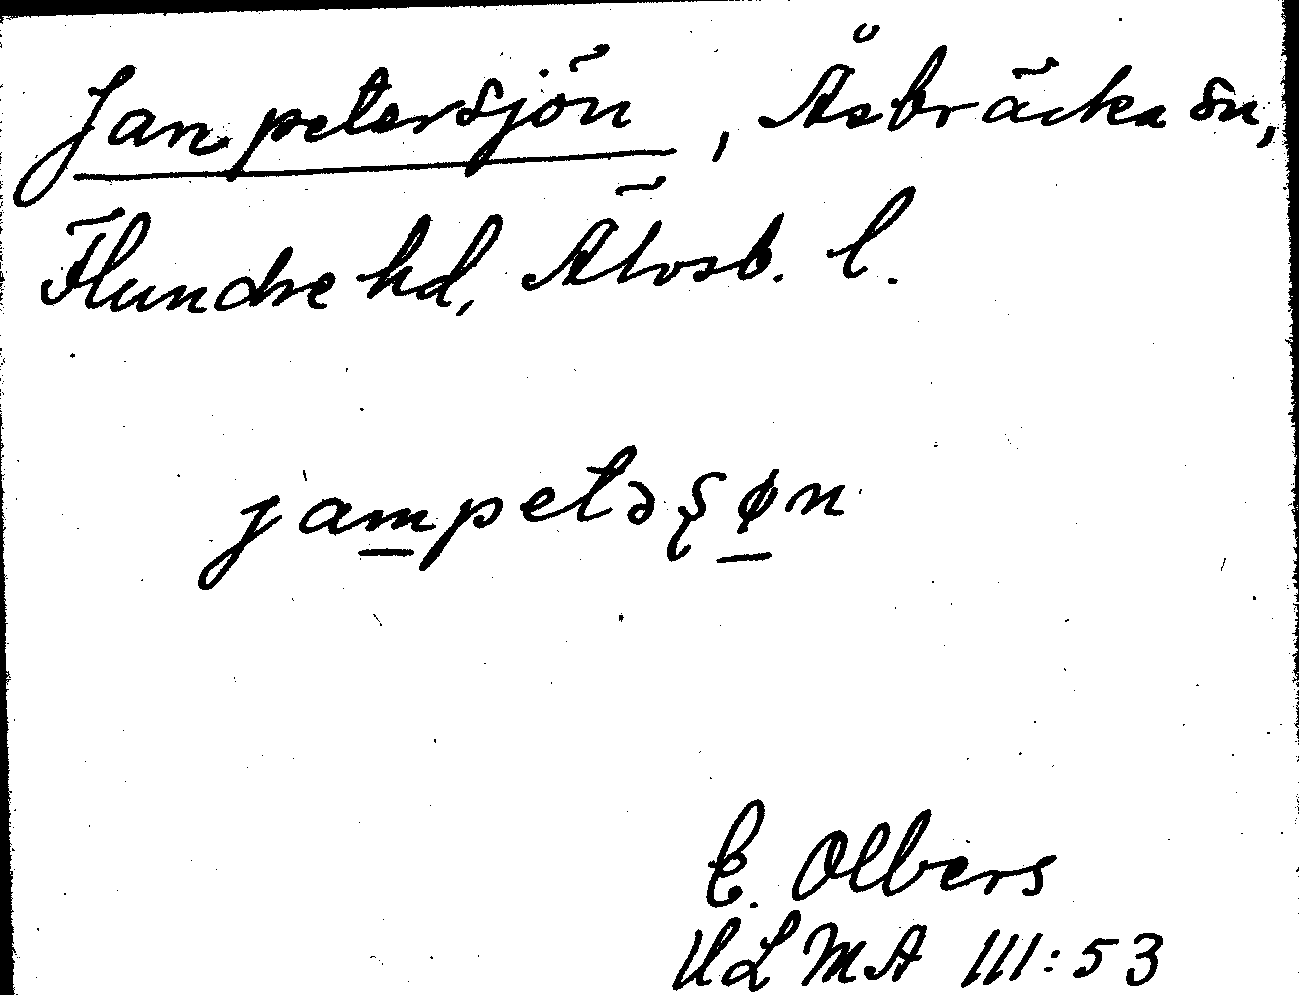 Jan petersjön, Åsbräcka sn,
Flundre hd, Älvsb. l.
jampetəʂøn
E. Olbers
ULMA III:53